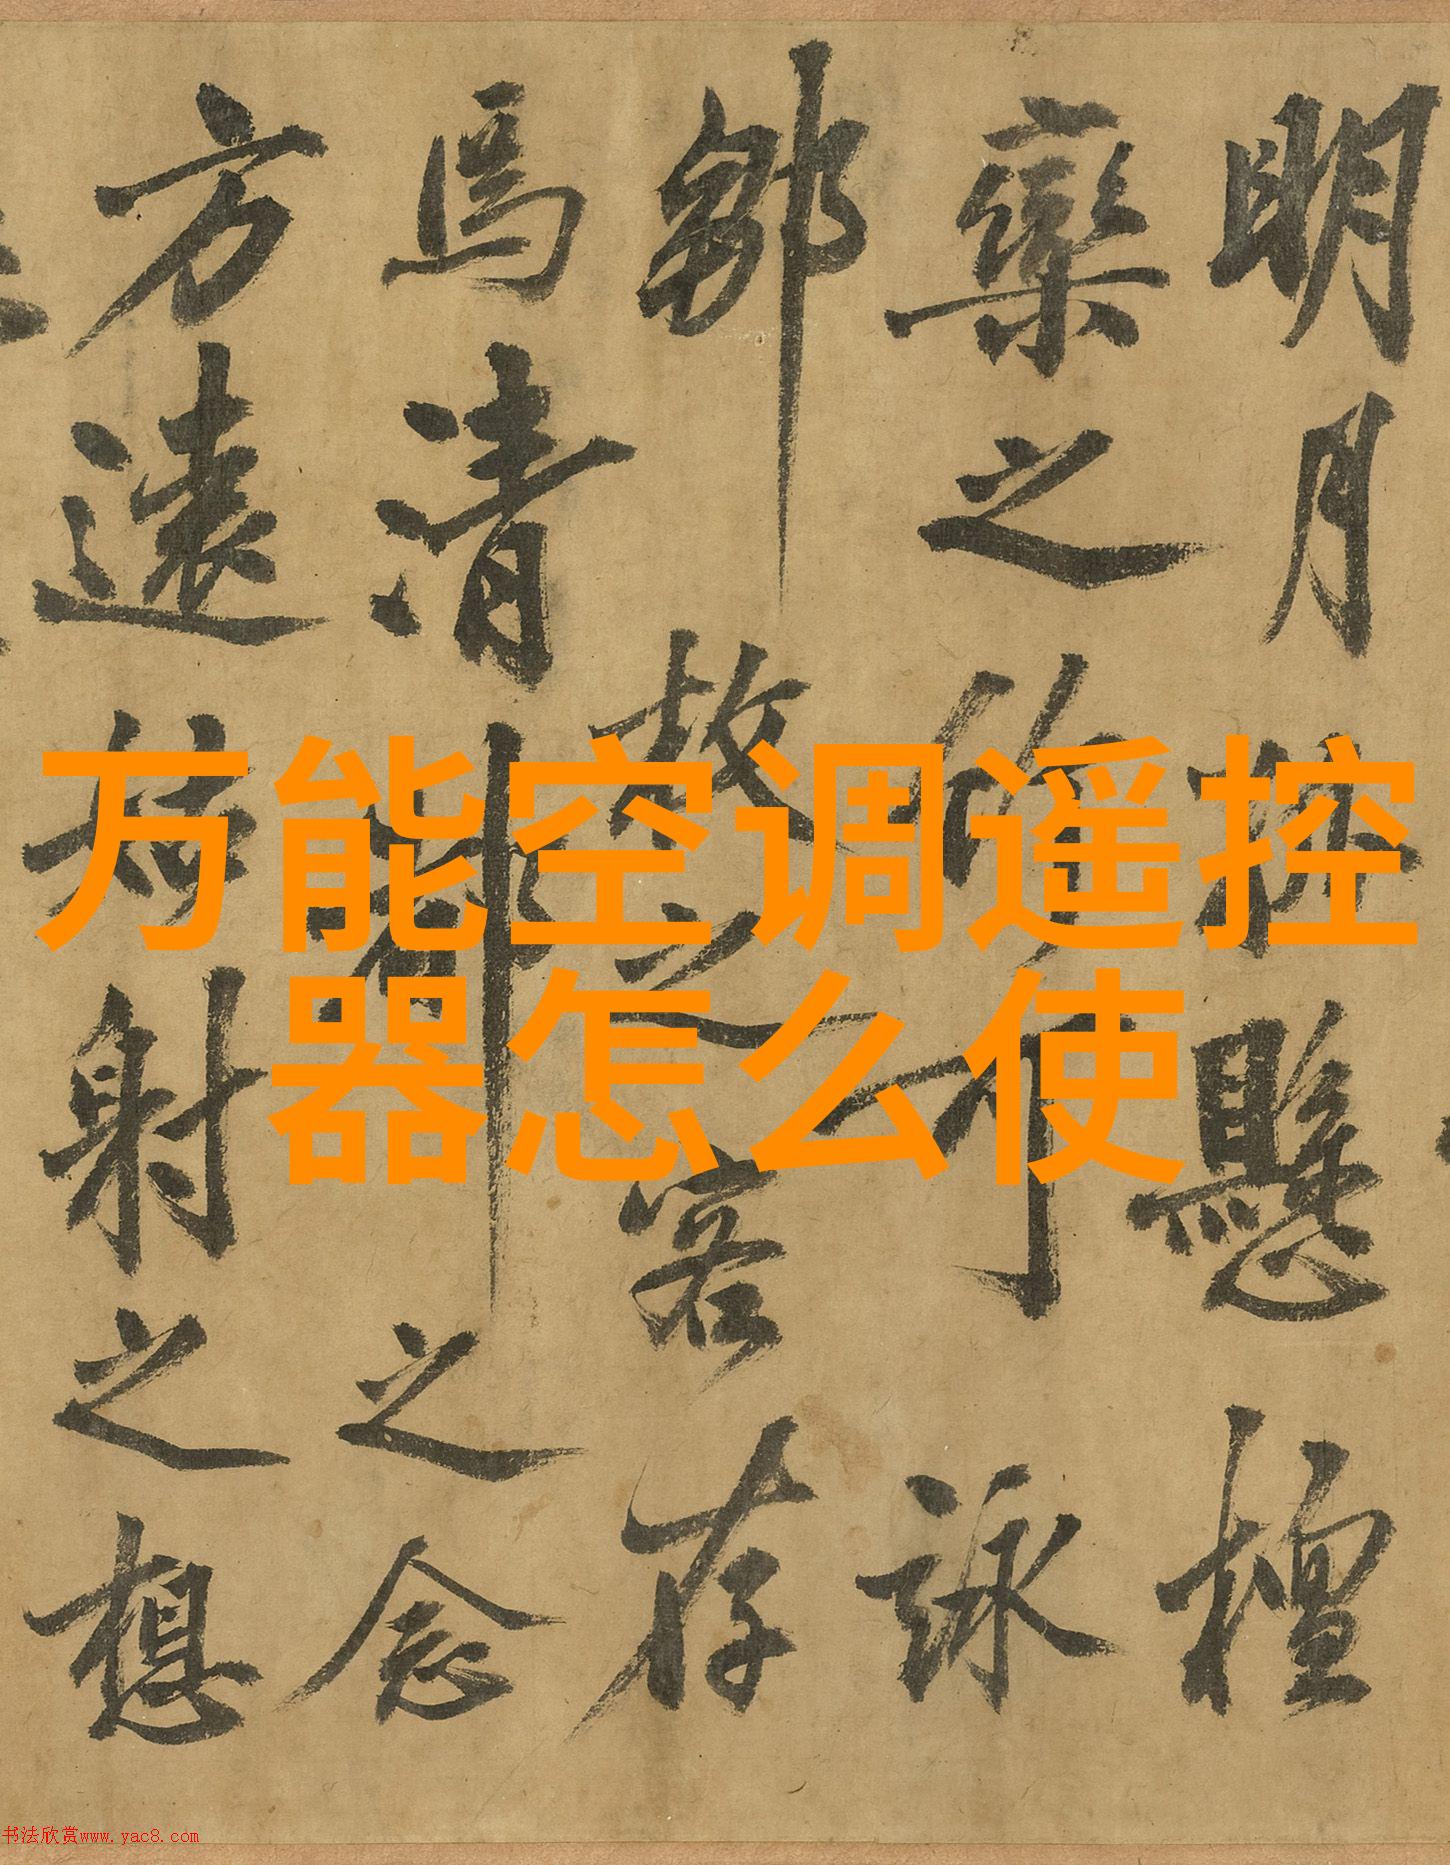 明月懸檀
欒之作可詠
鄒故之客存
馬清之念
方遠姑射之想
万能空调遥控
器怎么使
书法欣赏www.yac8.com